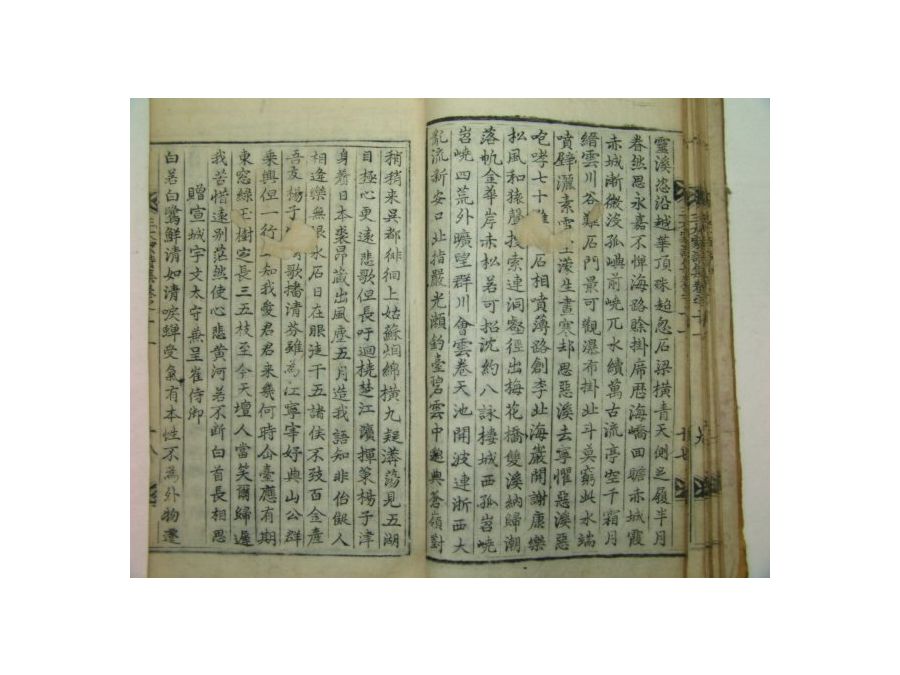 靈溪恣沿越華頂殊超忽石梁橫青天側足履半月
眷然思永嘉不憚海路賒掛席歷海嶠回瞻赤城霞
赤城漸微沒孤嶼前嶢兀水續萬古流亭空千霜月
縉雲川谷難石門最可觀瀑布掛北斗莫窮此水端
噴壁灑素雪濛生晝寒却思惡溪去寧懼惡溪惡
咆哮七十灘石相噴薄路創李北海巖開謝康樂
松風和猿聲搜索連洞壑徑出梅花橋雙溪納歸潮
落帆金華岸赤松若可招沈約八詠樓城西孤岧嶢
岧嶢四荒外曠望群川會雲卷天地開波連浙西大
亂流新安口北指嚴光瀨釣臺碧雲中邈與蒼嶺對
稍稍来吳都徘徊上姑蘇烟綿橫九疑漭蕩見五湖
目極心更遠悲歌但長吁迴橈楚江濱揮策楊子津
身着日本裘昂藏出風塵五月造我語知非佁儗人
相逢樂無限水石日在眼徒干五諸侯不致百金産
吾友楊子歌播清芬雖為江寧宰好與山公群
乘興但一行知我愛君君来幾何時仚臺應有期
東窓綠玉樹定長三五枝至今天壇人當笑爾歸遲
我苦惜遠別茫然使心悲黃河若不断白首長相思
贈宣城宇文太守兼呈崔侍御
白若白鷺鮮清如清唳蟬受氣有本性不為外物遷